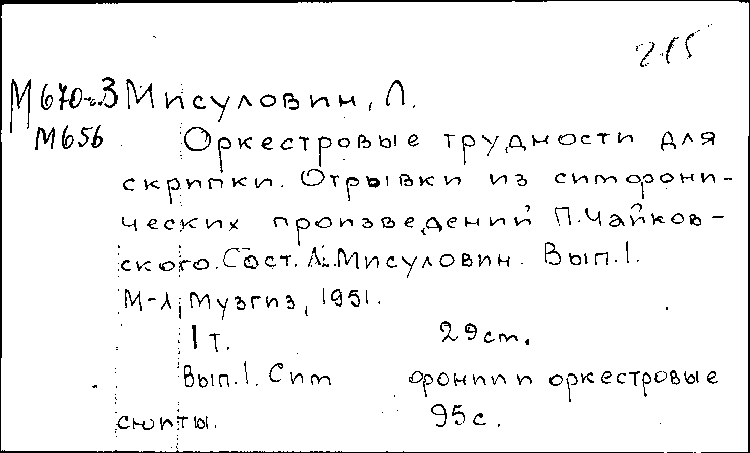 215
М670-3 Мисуловин, Л.
М656 Оркестровые трудности для
скрипки. Отрывки из симфони-
ческих произведений П. Чайков-
ского. Сост. Л. Мисуловин. Вып. 1.
М-Л, Музгиз, 1951.
1 т. 29 см.
Вып. 1. Сим фонии и оркестровые
сюиты. 95 с.